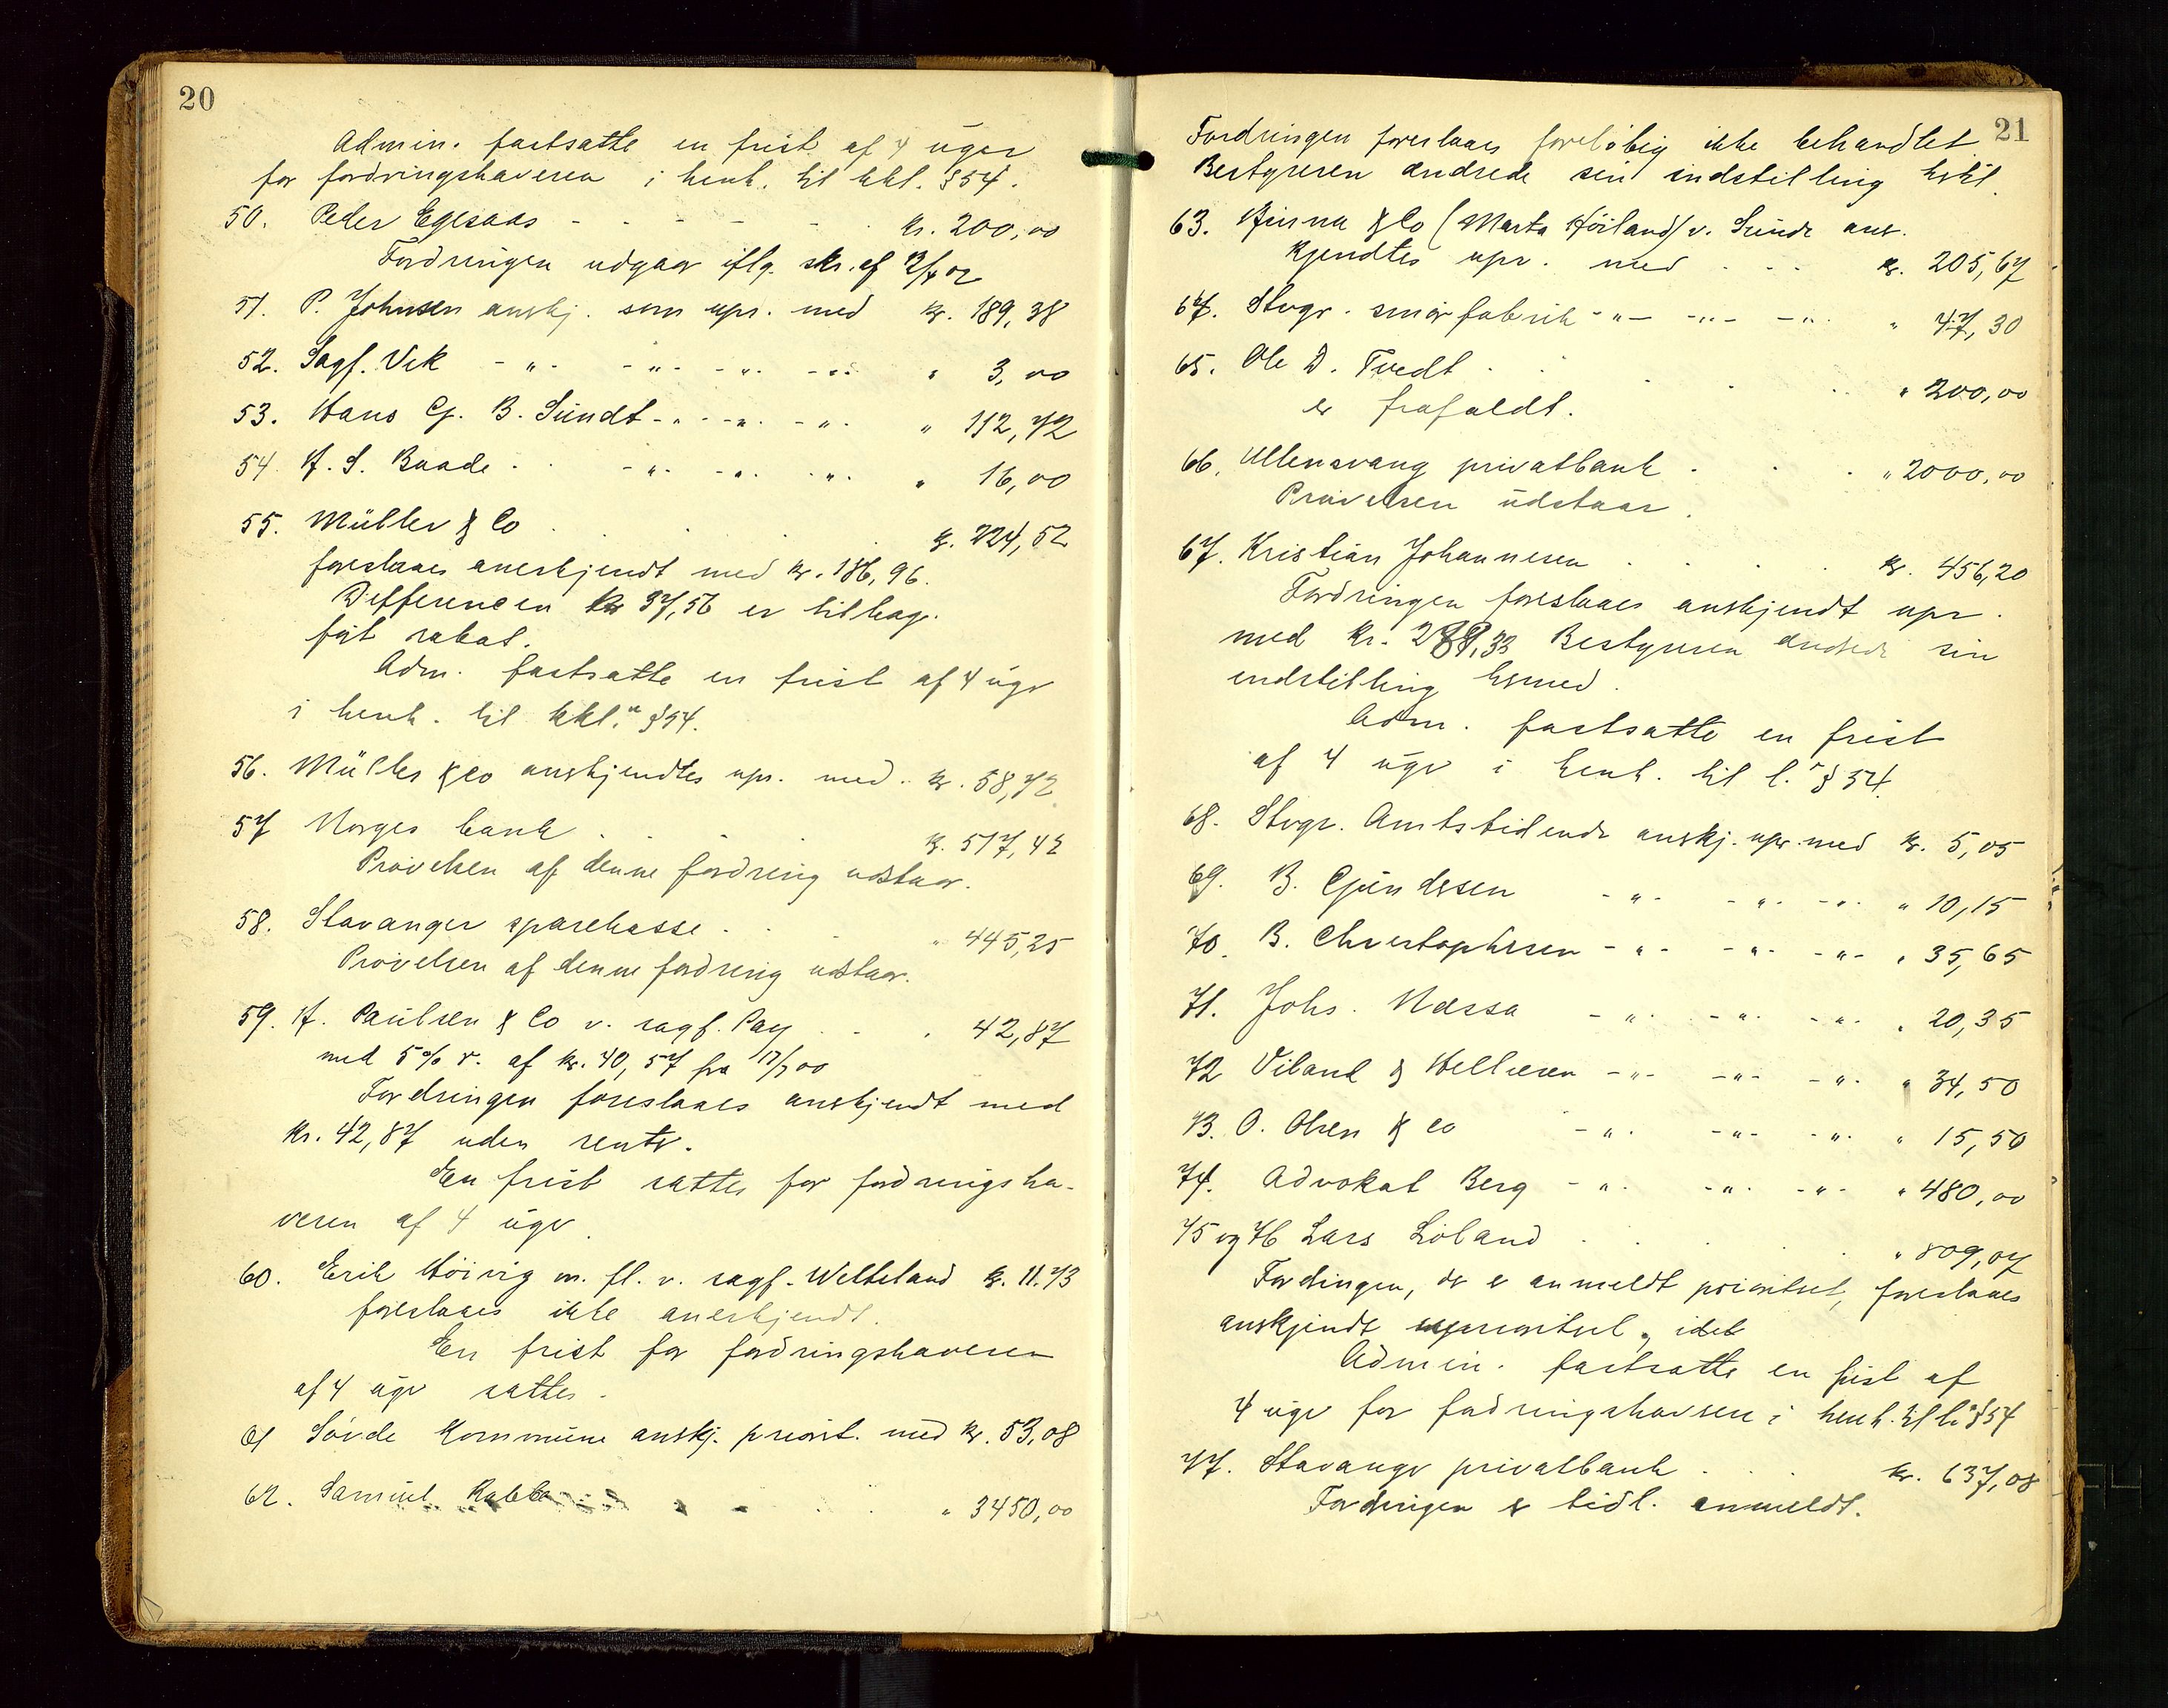 20
Admin. fastsatte en frist af 4 uger
for fordringshaveren i henh. til kkl. § 54.
50. Peder Egesaas - - - - - kr. 200,00
Fordringen udgaar iflg. skr. af
51. P. Johnsen anskj. som upr. med kr. 189,38
52. Sagf. Vik - " - - " - - " - - " - " 3,00
53. Hans G. B. Sundt - " - - " - - " - " 112,72
54. A. S. Baade - - " - - " - - " - " 16,00
55. Müller & Co . . . kr. 224,52
foreslaaes anerkjendt med kr. 186,96.
Differencen kr 37,56 er tilbage-
ført rabat.
Adm. fastsatte en frist af 4 uger
i henh. til kkl. § 54.
56. Müller & Co anerkjendtes upr. med . kr. 58,72
57 Norges bank . . . kr. 517,42
Prøvelsen af denne fordring udstaar.
58. Stavanger sparekasse . . . " 445,25
Prøvelsen af denne fordring udstaar.
59. A. Paulsen & Co v. sagf. Pay . . " 42,87
med 5 % r. af kr. 40,57 fra 00
Fordringen foreslaaes anerkjendt med
kr. 42,87 uden renter.
En frist sattes for fordringsha-
veren af 4 uger.
60. Erik Høivig m. fl. v. sagf. Welteland kr. 11.73
foreslaaes ikke anerkjendt.
En frist for fordringshaveren
af 4 uger sattes.
61 Søvde Kommune anskj. priorit. med kr. 53,08
62. Samuel Rabbe . . . " 3450,00
21
Fordringen foreslaaes foreløbig ikke behandlet
Bestyreren ændrede sin indstilling hertil.
63. & Co (Marta Høiland) v. Sunde aner-
kjendtes upr. med . . . kr. 205,67
64. Stvgr. smørfabrik - " - - " - - " - " 47,30
65. Ole D. Tvedt . . . " 200,00
er frafaldt.
66. Ullensvang privatbank . . . " 2000,00
Prøvelsen udstaar.
67. Kristian Johannesen . . . kr. 456,20
Fordringen foreslaaes anskjendt upr.
med kr. Bestyreren ændrede sin
indstilling hermed.
Adm. fastsatte en frist
af 4 uger i henh. til l. § 54.
68. Stvgr. Amtstidende anskj. upr. med kr. 5,05
69. B. Gundersen - " - - " - - " - " 10,15
70. B. Christophersen - " - - " - - " - " 35,65
71. Johs. Næssa - " - - " - - " - " 20,35
72 Viland & Hellesen - " - - " - - " - " 34,50
73. O. Olsen & Co - " - - " - - " - " 15,50
74. Advokat Berg - " - - " - - " - " 480,00
75 og 76 Lars Løland . . . " 809,07
Fordingen, der er anmeldt prioritet, foreslaaes
anskjendt uprioritet, idet
Admin. fastsatte en frist af
4 uger for fordringshaveren i henh. til l. § 54
77. Stavanger privatbank . . . kr. 637,08
Fordringen er tidl. anmeldt.